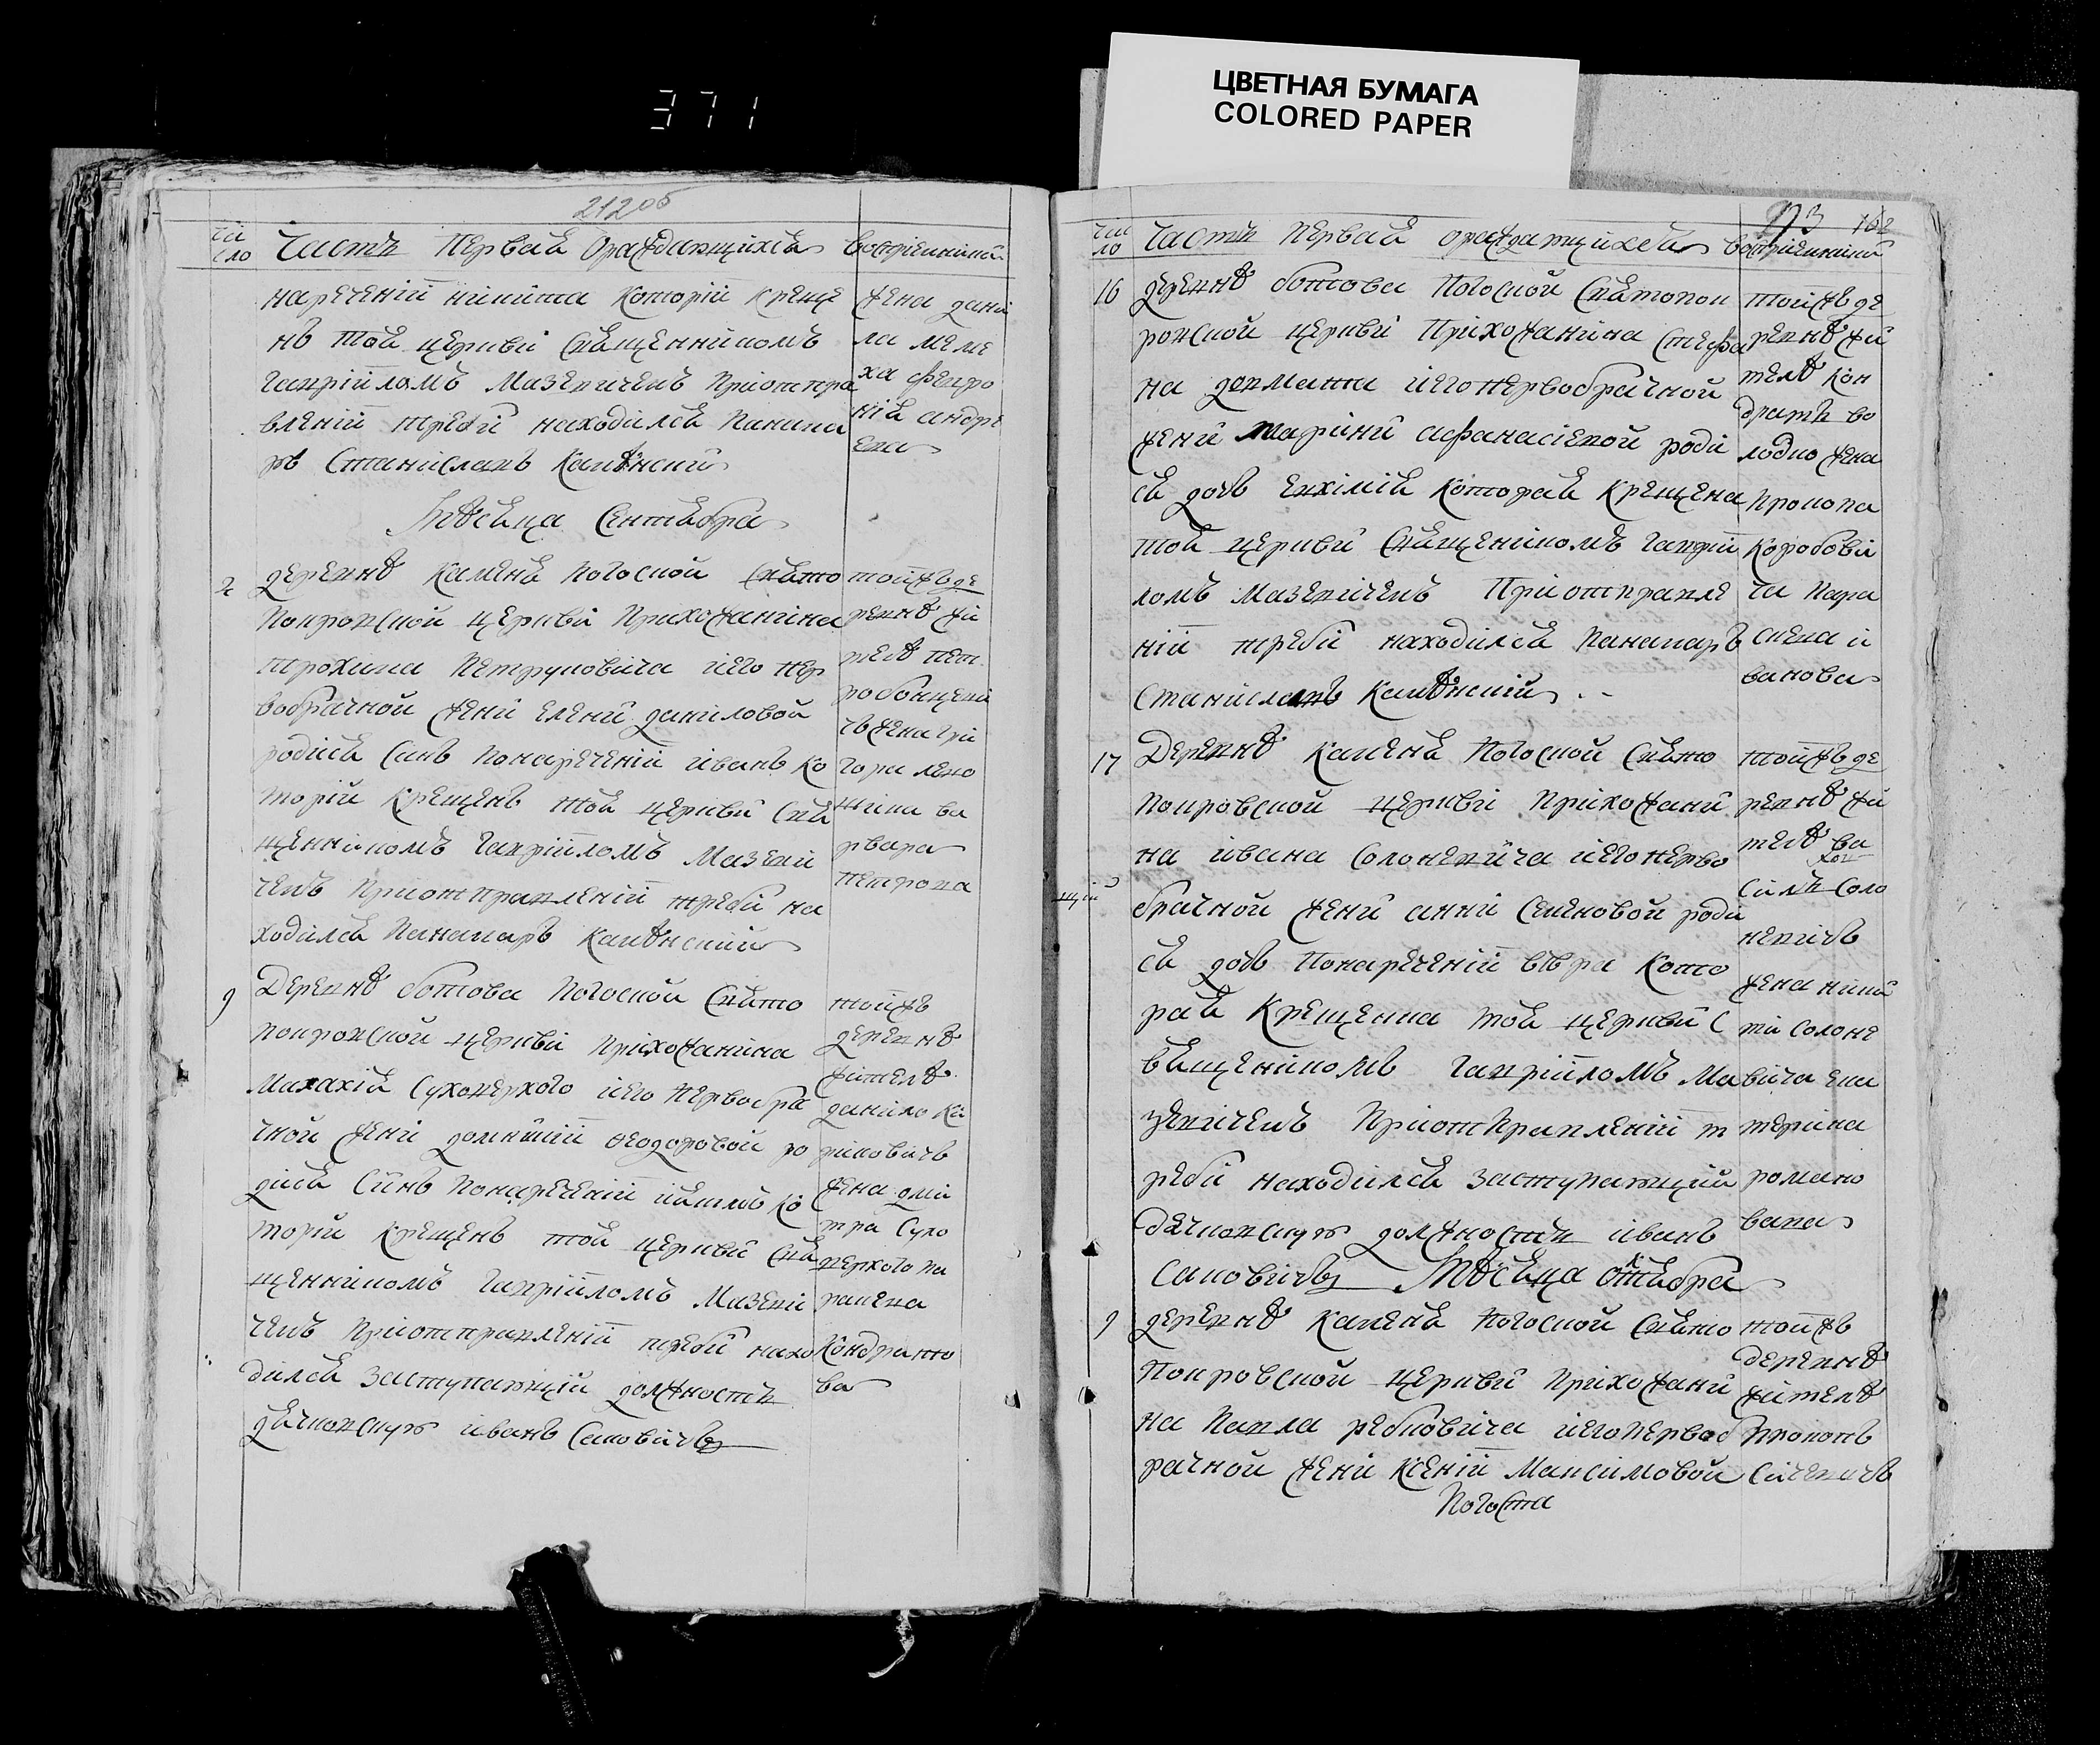 371
ЦВЕТНАЯ БУМАГА
COLORED PAPER
212об
чи
сло
Часть Первая Ораждающихся
Воспріемники
нареченій никита Который креще
нъ тоя церкви Священникомъ
Гавріиломъ Мазевичемъ Приотпра
вленіи требы находился Панама
ръ Станиславъ Камѣнскій
жена дани
ла меле
ха февро
нія андре
ева
Мѣсяца Сентября
2
деревнѣ Каменя Погоской Свято
Покровской церкви Прихожанина
трохима Петруковича їего пер
вобрачной жени елени даниловой
родися Синъ Понареченіи иванъ Ко
торій Крещенъ тоя церкви Свя
щенникомъ Гавріиломъ Мазеви
чемъ Приотправленіи треби на
ходился Панамаръ Камѣнскій
тойжъ де
ревнѣ жи
телѣ пет
жена гри
вара
петрова
9
Деревнѣ ботова Погоской Свято
Покровской церкви Прихожанина
Малахія Сухоперкого їего Первобра
чной жени домникїи феодоровой ро
дися Синъ Понареченіи Ко
торій Крещенъ тоя церкви Свя
щенникомъ Гавріиломъ Мазеви
чемъ Приотправленіи требы нахо
дился Заступающій должность
дячковскую иванъ Саковичъ
тойжъ
деревнѣ
жителѣ
данило Ки
риковичъ
жена дми
тра Сухо
перкого па
раскева
Кондрато
ва
213 162
чис
ло
Часть Первая ораждающихся
воспріемники
16
деревнѣ ботова Погоской Святопок
ровской церкви Прихожанина Стефа
на довмата їего первобрачной
жени Марини афанасіевой роди
ся дочъ Евхимія Которая Крещена
тоя церкви Священикомъ Гаврїи
ломъ Мазевичемъ Приотправле
ніи требы находился Панамаръ
Станиславъ Камѣнскій
тойжъ де
ревнѣ жи
телѣ Кон
дратъ во
лодко жена
Прокопа
Коробови
ча Пара
скева и
ванова
17
Деревнѣ Каменя Погоской Свято
покровской церкви Прихожани
на ивана Солоневича їего перво
брачной жени анни Семеновой роди
ся дочъ Понареченіи вѣра Кото
рая Крещенна тоя церкви С
вященикомъ Гавріиломъ Ма
зевичемъ Приотправленіи т
реби находился Заступающій
дячковскую должность иванъ
Саковичъ
тойжъ де
ревнѣ жи
телѣ ва
силь Соло
невичъ
жена ники
ти Солоне
вича ека
терина
романо
вана
Мѣсяца октября
9
деревнѣ Каменя Погоской Свято
Покровской церкви Прихожани
на Павла ребковича їего Первоб
рачной жени Ксеніи Максимовой
тойжъ
деревнѣ
жителѣ
Прокопъ
Сичевичъ
Погоста